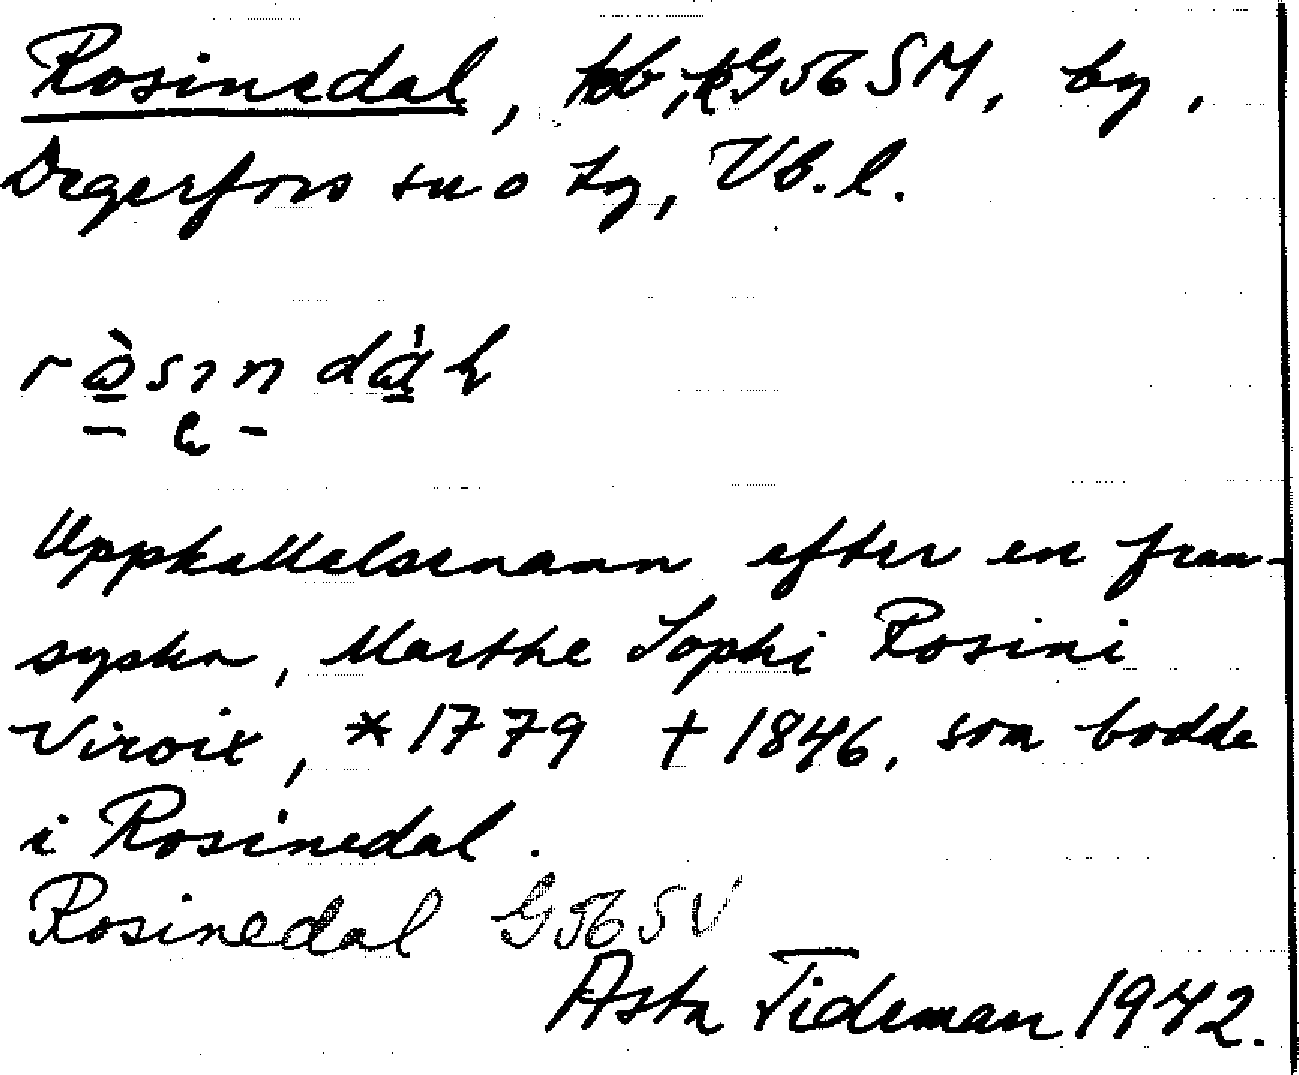 Rosinedal, G56SM, by,
Degerfors sn o tg, Vb. l.
Uppkallelsenamn efter en fran-
syska, Marthe Sophi Rosini
Viroix, *1779 †1846, som bodde
i Rosinedal.
Rosinedal G56SV
Asta Tideman 1942.